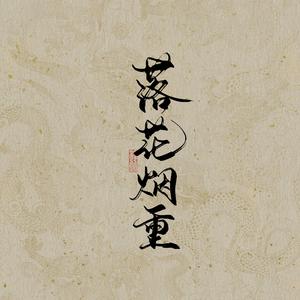 落花烟重